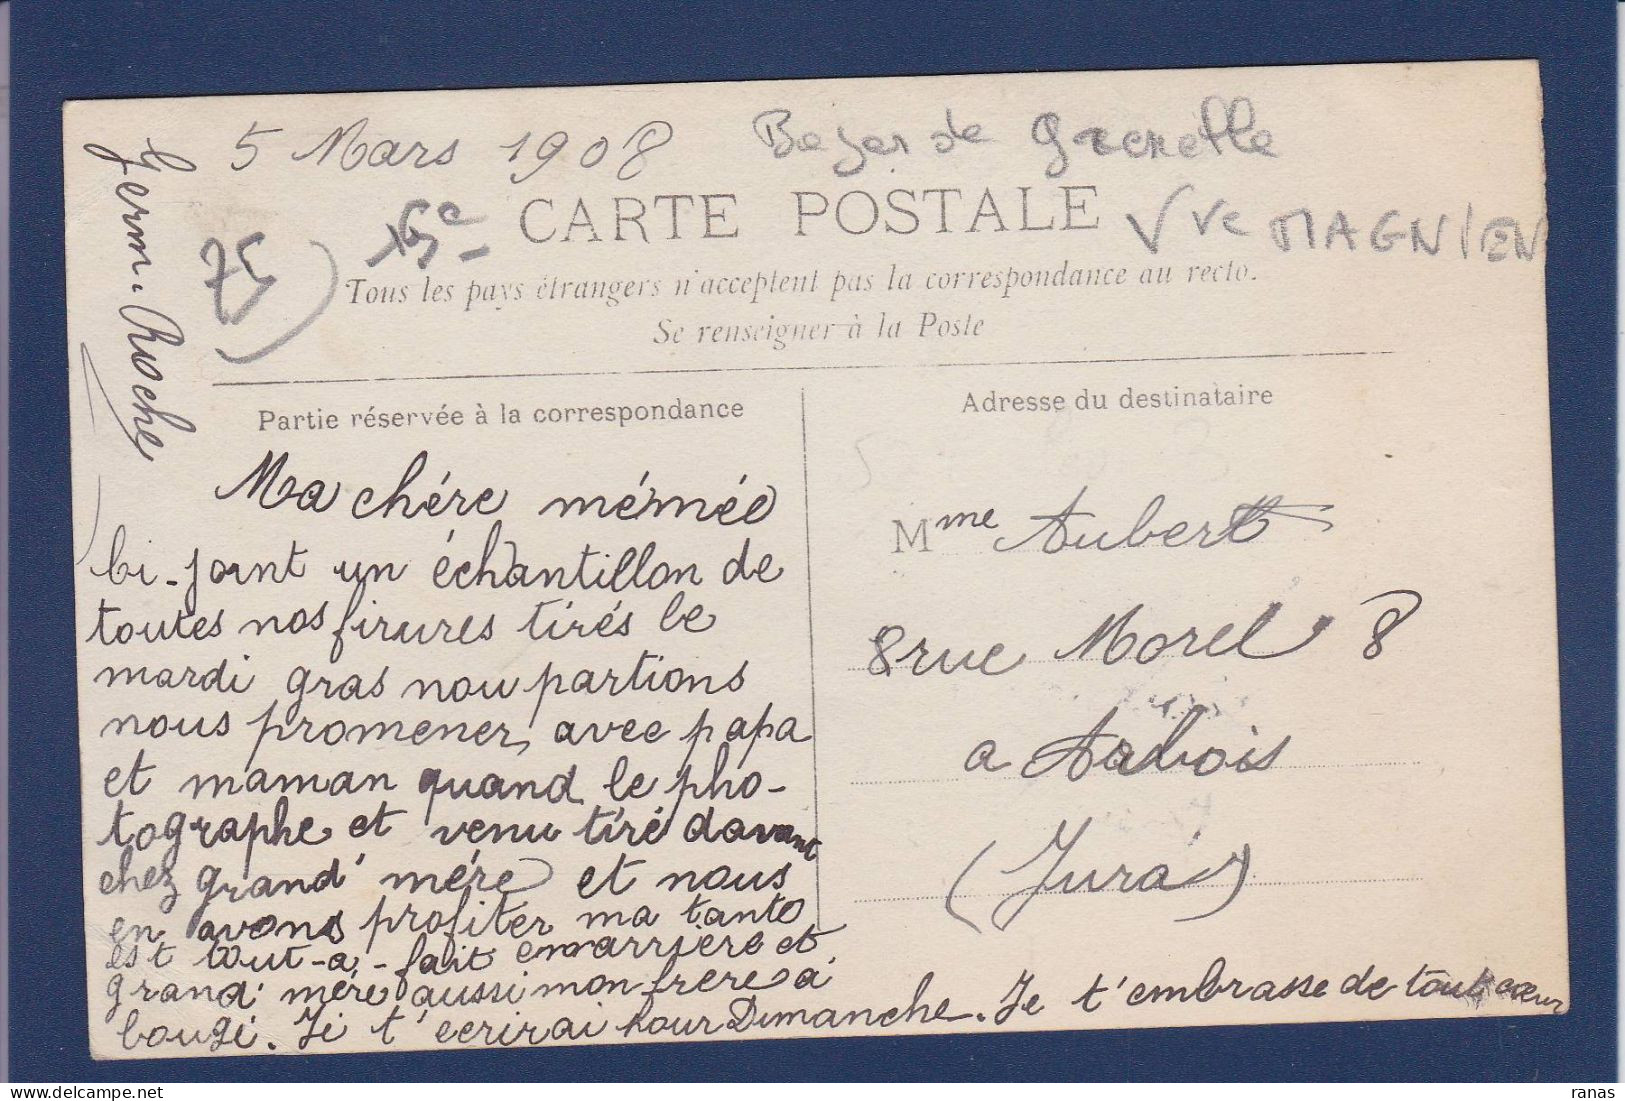 5 Mars 1908
Bazar de Grenelle
Germ. Roche
75)
15e
CARTE POSTALE
Vve MAGNIEN
Tous les pays étrangers n'acceptent pas la correspondance au recto.
Se renseigner à la Poste
Partie réservée à la correspondance
Ma chére mémée
Ci-joint un échantillon de
toutes nos firures tirés le
mardi gras nou partions
nous promener avec papa
et maman quand le pho-
tographe et venu tiré davant
chez grand' mére et nous
en avons profiter ma tante
est tout-a-fait emarrière et
grand' mére aussi mon frere a
bougé. Je t'ecrirai pour Dimanche. Je t'embrasse de tout cœur
Adresse du destinataire
Mme Aubert
8 rue Morel 8
a Arbois
(Jura)
ranas